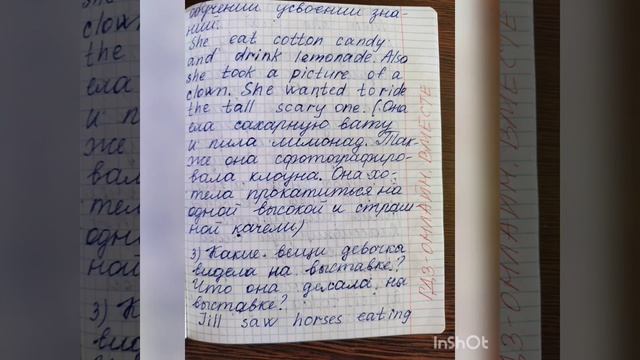 обучении усвоении зна-
ний.
She eat cotton candy
and drink lemonade. Also
she took a picture of a
clown. She wanted to ride
the tall scary one. (Она
ела сахарную вату
и пила лимонад. Так-
же она сфотографиро-
вала клоуна. Она хо-
тела прокатиться на
одной высокой и страш-
ной качели)
3) Какие вещи девочка
видела на выставке?
Что она делала на
выставке?
Jill saw horses eating
ГДЗ-ОНЛАЙН ВМЕСТЕ
InShOt